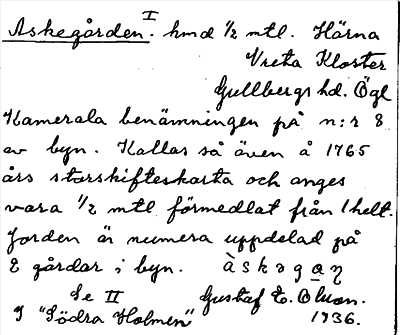 Askegården. I hmd 1/2 mtl. Härna
Vreta Kloster
Gullbergs hd. Ögl
Kamerala benämningen på n:r 8
av byn. Kallas så även å 1765
års storskifteskarta och anges
vara 1/2 mtl förmedlat från 1 helt.
Jorden är numera uppdelad på
2 gårdar i byn. àskəgaη
Se II Gustaf E. Oluon.
I "Södra Holmen" 1936.